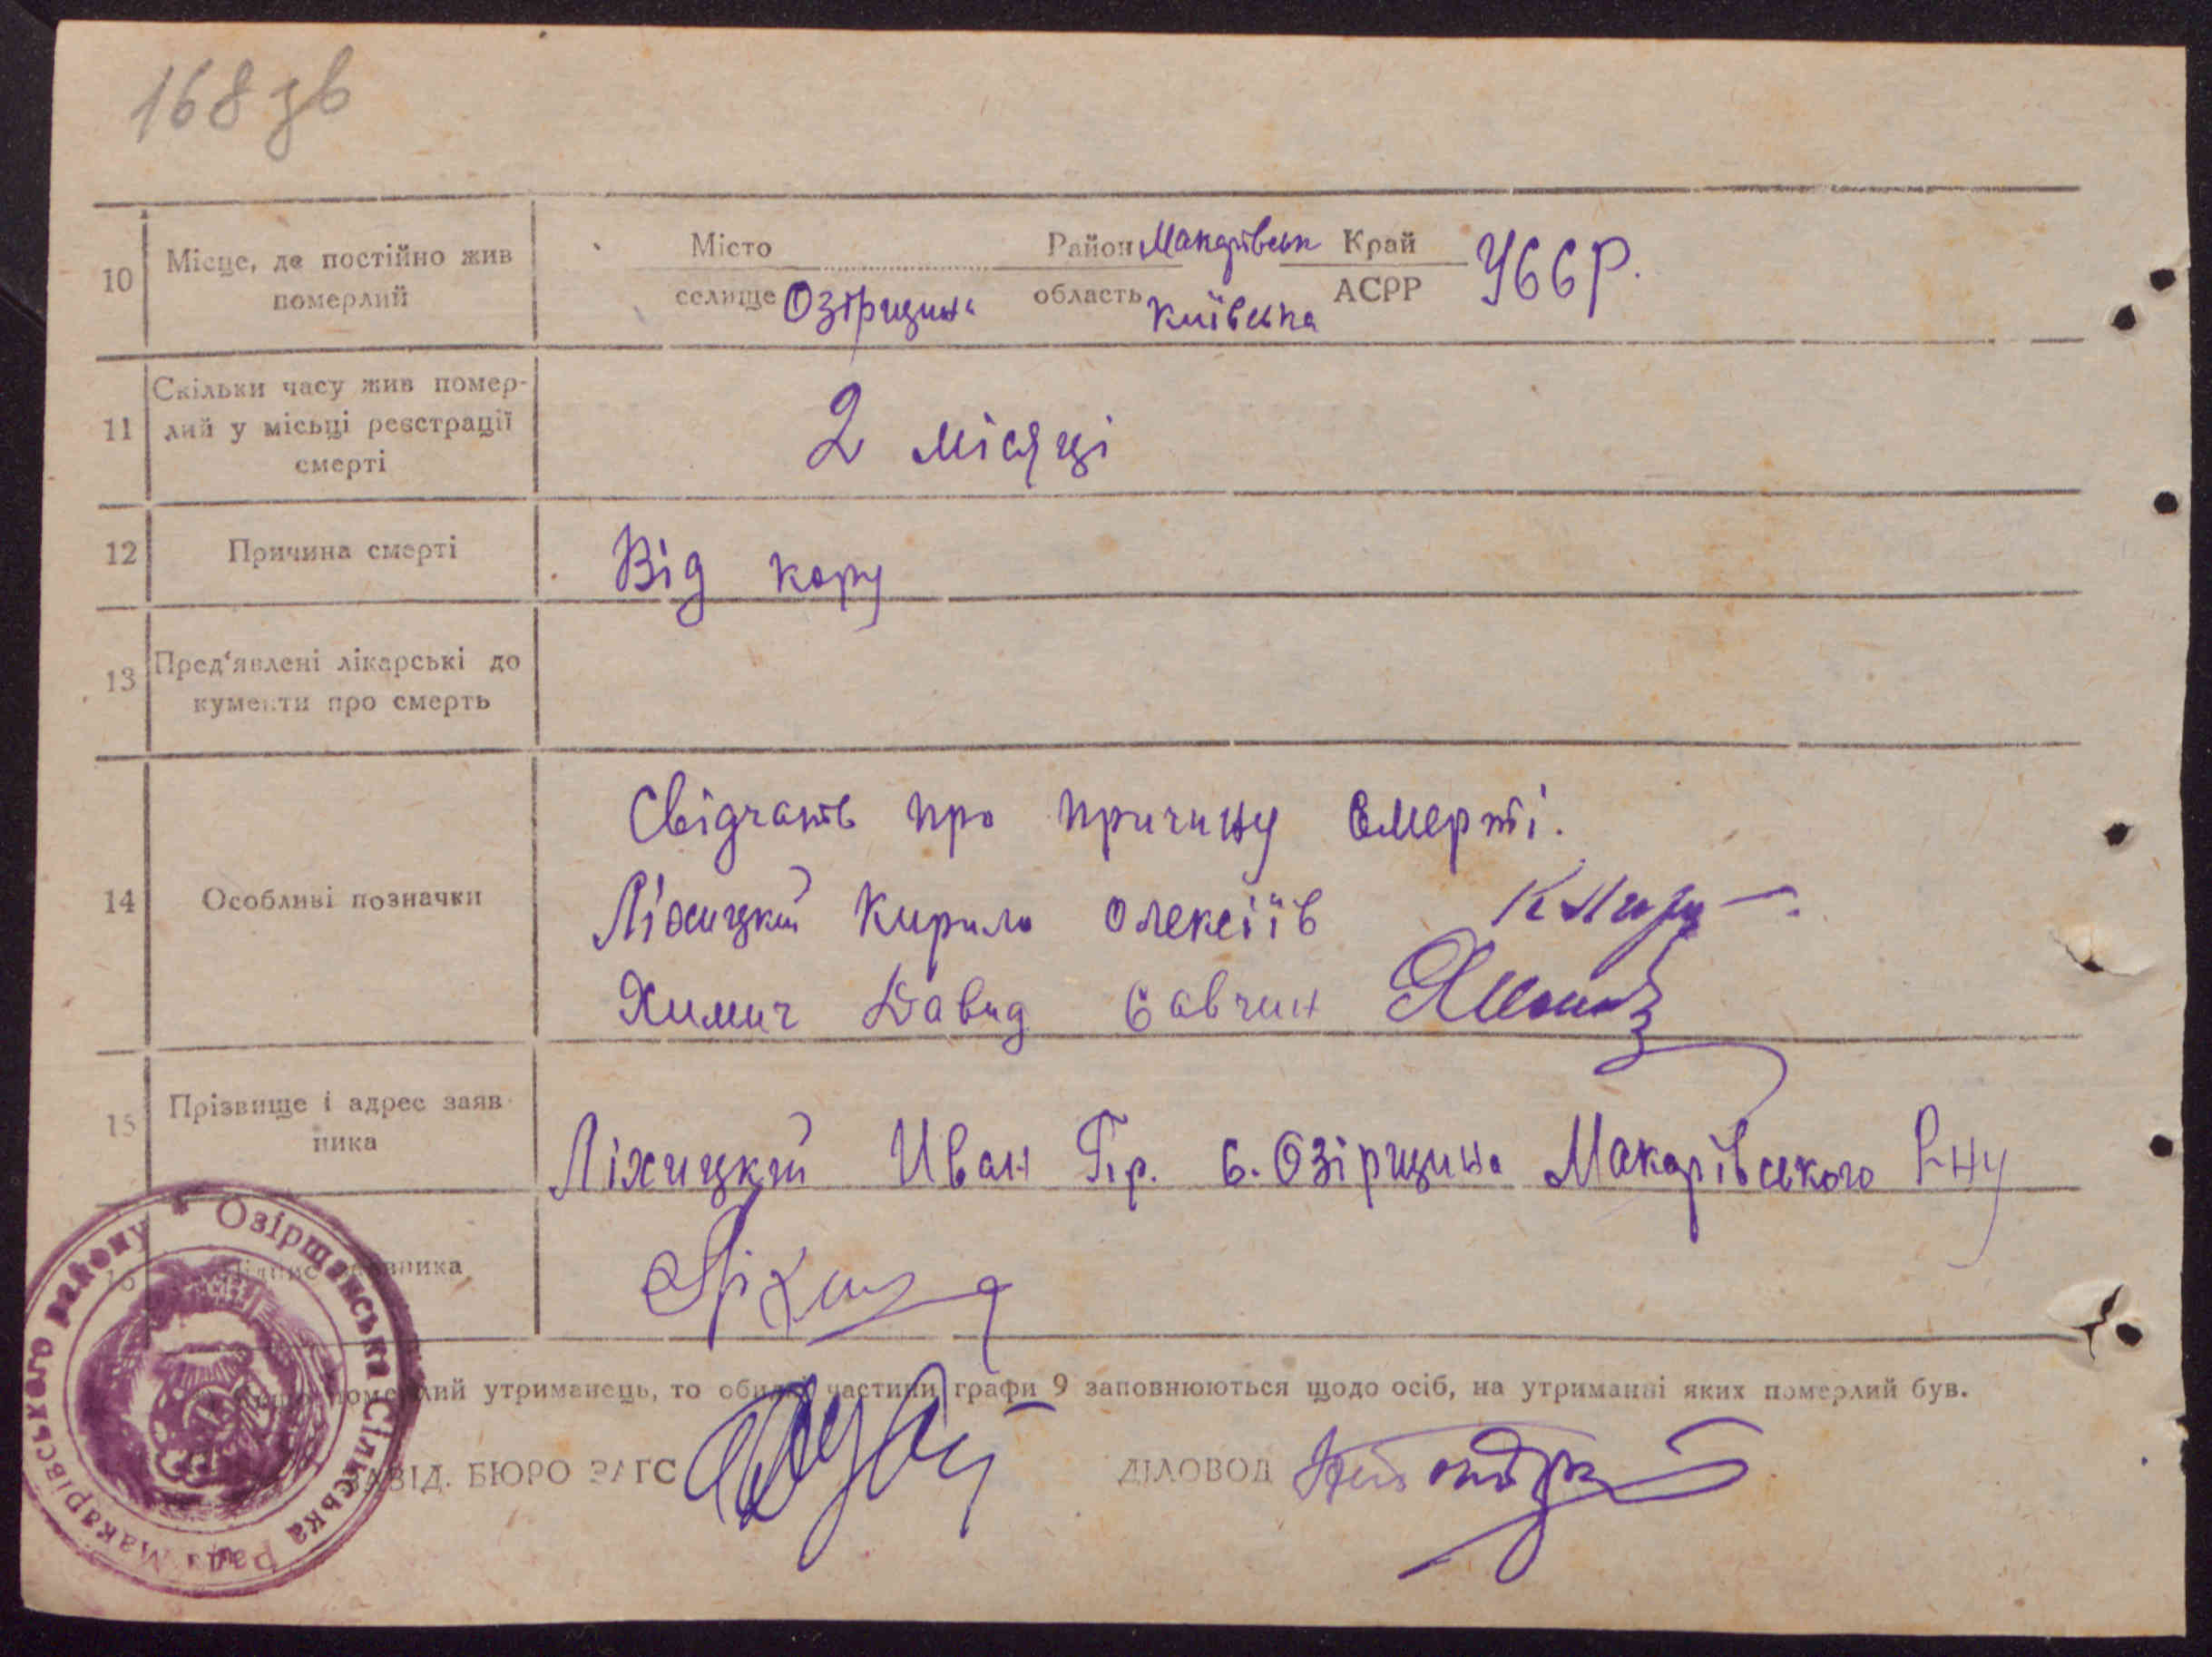 168 зв
10 Місце, де постійно жив померлий
Місто Район Макарівськ Край УССР.
селище Озірщина область Київська АСРР
11 Скільки часу жив помер-
лий у місьці реєстрації
смерті
2 місяці
12 Причина смерті Від кору
13 Пред'явлені лікарські до
кументи про смерть
Свідчать про причину смерті.
14 Особливі позначки
Ліхицкий Кирило Олексіїв
Химич Давид Савчин
15 Прізвище і адрес заяв
ника
Ліхицкий Иван Гр. с. Озірщина Макарівського Р-ну
16 Підпис заявника
Якщо померлий утриманець, то обидві частини графи 9 заповнюються щодо осіб, на утриманні яких померлий був.
ЗАВІД. БЮРО ЗАГС ДІЛОВОД
Озірщанська Сільська Рада Макарівського району